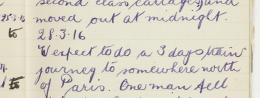 second class carriages) and
25.3.16 moved out at midnight.
to 28.3.16
We expect to do a 3 days train
journey, to somewhere north
to of Paris. One man fell